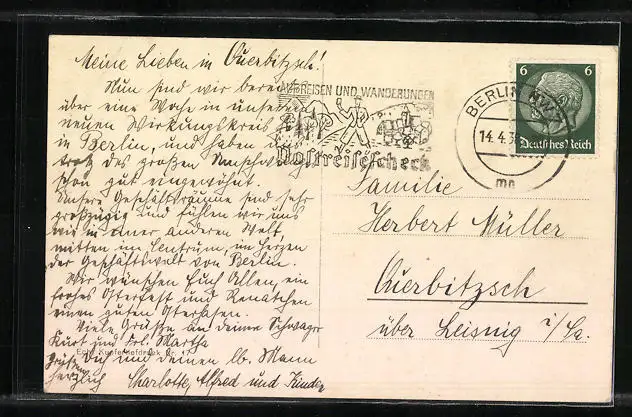 Meine Lieben in Querbitzsch!
Nun sind wir bereits
über eine Woche in unserem
neuen Wirkungskreis
in Berlin, und haben uns
trotz des großen Umschwungs
schon gut eingewöhnt.
Unsere Geschäftsräume sind sehr
großzügig und fühlen wir uns
wie in einer anderen Welt,
mitten im Zentrum, im Herzen
der Geschäftswelt von Berlin.
Wir wünschen Euch Allen, ein
frohes Osterfest und Renatchen
einen guten Osterhasen.
Viele Grüße an Deinen Schwager
Kurt und Frl. Martha
Echt Kupfertiefdruck Nr. 17
Grüßen
Dich und Deinen lb. Mann
herzlich Charlotte, Alfred und Kinder
AUF REISEN UND WANDERUNGEN
Postreisescheck
BERLIN NW 7
14.4.
mn
6 6
Deutsches Reich
Familie
Herbert Müller
Querbitzsch
über Leisnig i/Sa.